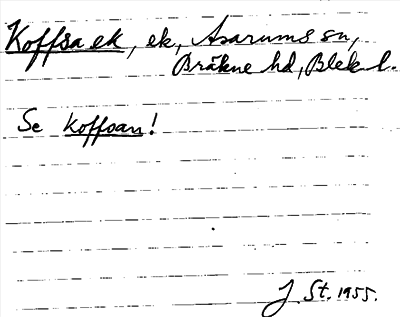 Koffsa ek, ek, Asarums sn,
Bräkne hd, Blek l.
Se Koffsan!
J. St. 1955.